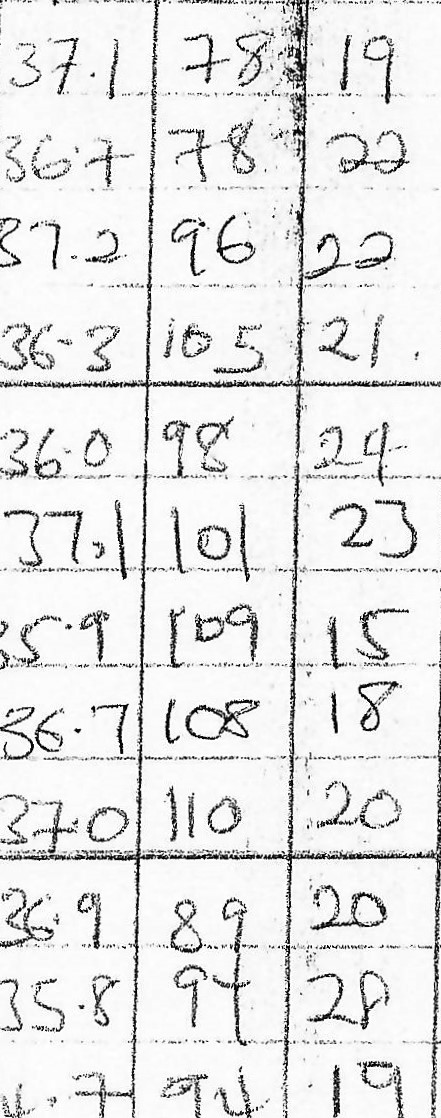 37.1 78 19
36.7 78 22
37.2 96 22
36.3 105 21.
36.0 98 24
37.1 101 23
35.9 109 15
36.7 108 18
37.0 110 20
36.9 89 20
35.8 94 28
94 19